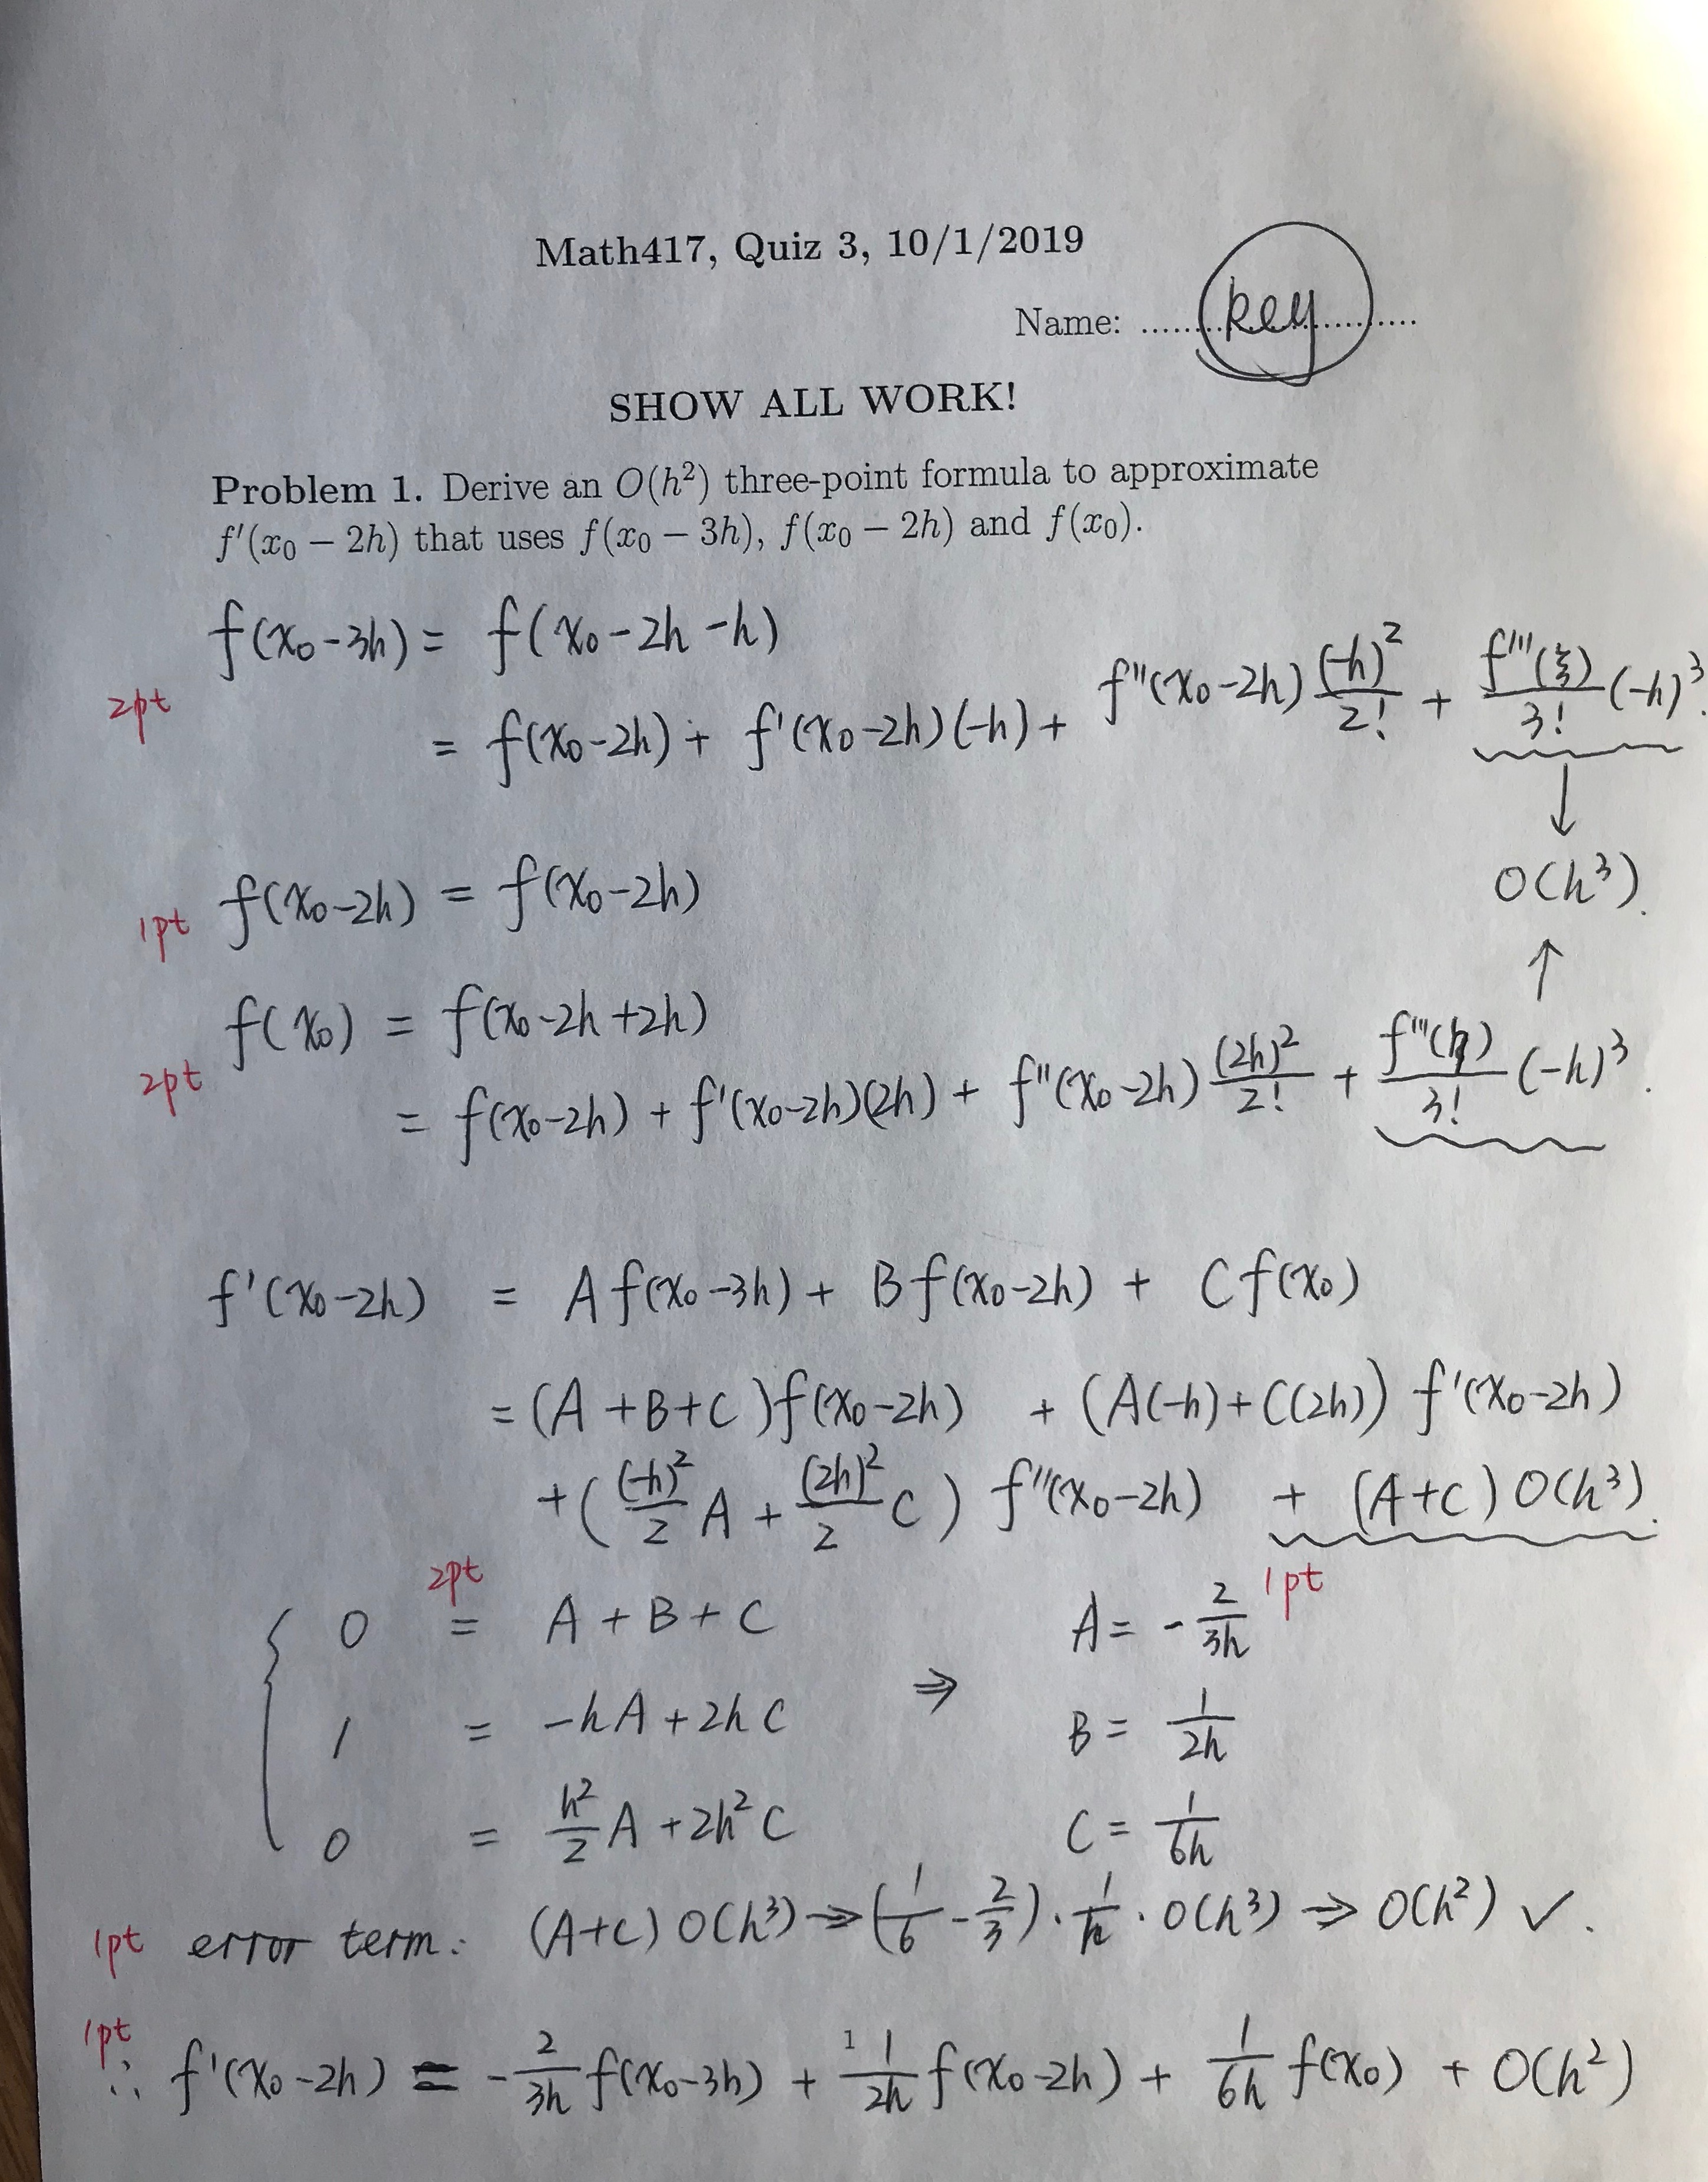 Math417, Quiz 3, 10/1/2019
Name: ........key............
SHOW ALL WORK!
Problem 1. Derive an O(h²) three-point formula to approximate
f′(x₀ − 2h) that uses f(x₀ − 3h), f(x₀ − 2h) and f(x₀).
f(x₀-3h) = f(x₀-2h-h)
2pt = f(x₀-2h) + f'(x₀-2h)(-h) + f''(x₀-2h) (-h)²/2! + f'''(ξ)/3! (-h)³.
↓
O(h³).
1pt f(x₀-2h) = f(x₀-2h)
↑
f(x₀) = f(x₀-2h+2h)
2pt = f(x₀-2h) + f'(x₀-2h)(2h) + f''(x₀-2h) (2h)²/2! + f'''(η)/3! (-h)³.
f'(x₀-2h) = A f(x₀-3h) + B f(x₀-2h) + C f(x₀)
= (A+B+C) f(x₀-2h) + (A(-h)+C(2h)) f'(x₀-2h)
+ ((-h)²/2 A + (2h)²/2 C) f''(x₀-2h) + (A+C) O(h³).
2pt 1pt
{ 0 = A+B+C A = -2/3h
1 = -hA+2hC ⇒ B = 1/2h
0 = h²/2 A + 2h² C C = 1/6h
1pt error term: (A+C) O(h³) ⇒ (1/6 - 2/3) · 1/h · O(h³) ⇒ O(h²) ✓.
1pt
∴ f'(x₀-2h) = -2/3h f(x₀-3h) + 1/2h f(x₀-2h) + 1/6h f(x₀) + O(h²)
1